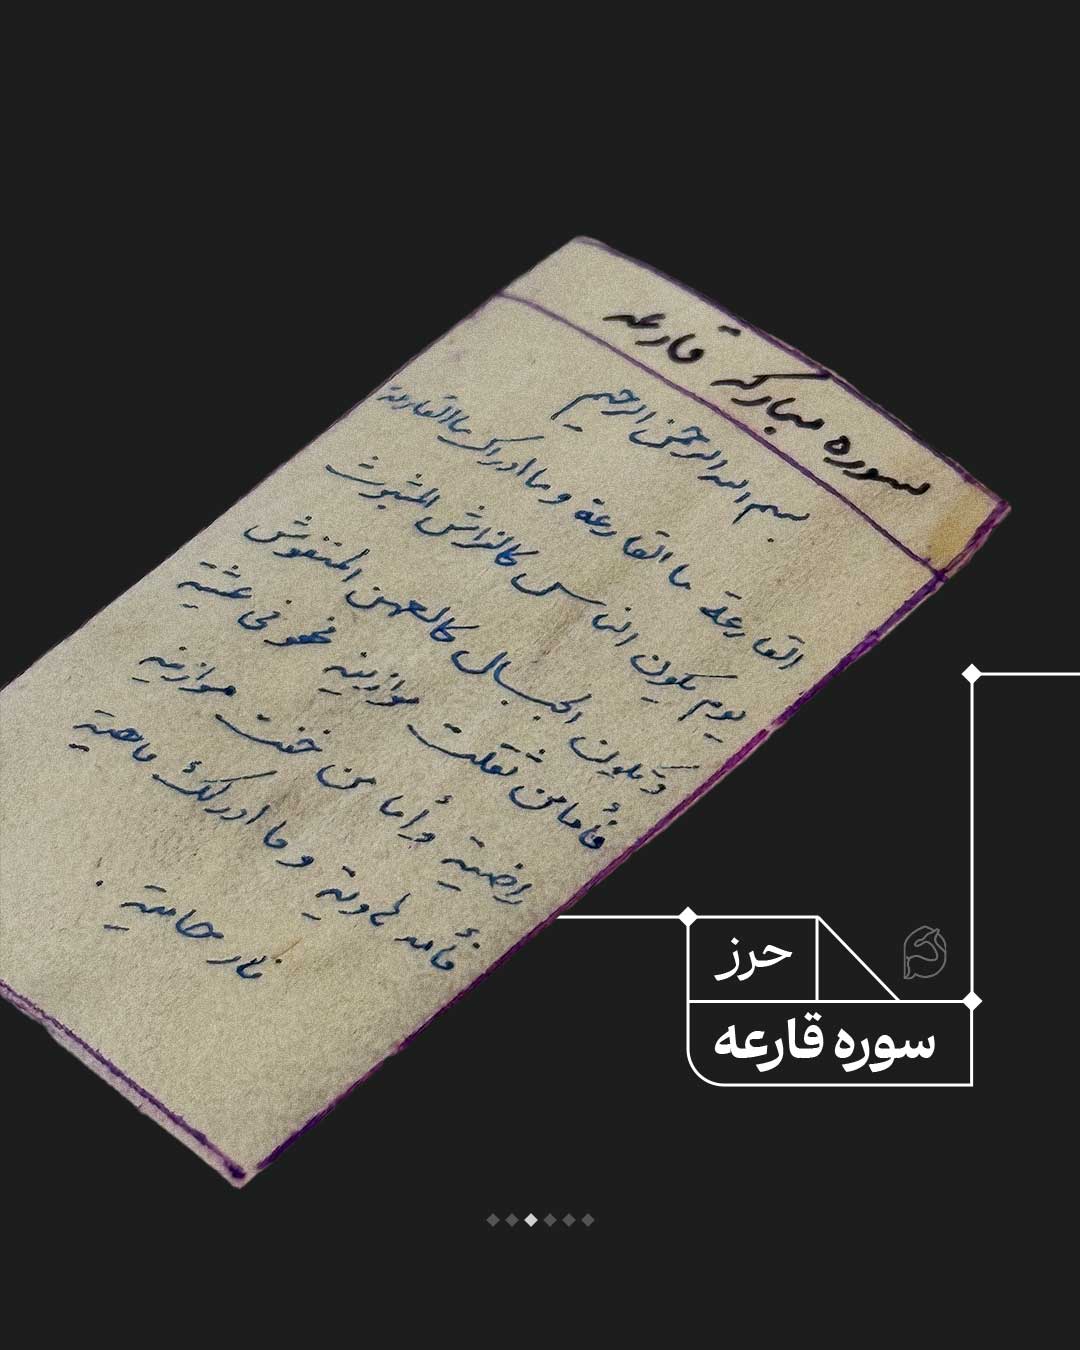 سوره مبارکه قارعة
بسم الله الرحمن الرحیم
القارعة ما القارعة وما ادراک ما القارعة
یوم یکون الناس کالفراش المبثوث
وتکون الجبال کالعهن المنفوش
فأما من ثقلت موازینه فهو فی عشیة
راضیة وأما من خفت موازینه
فأمه هاویة وما ادرلک ماهیة
نار حامیة .
حرز
سوره قارعه